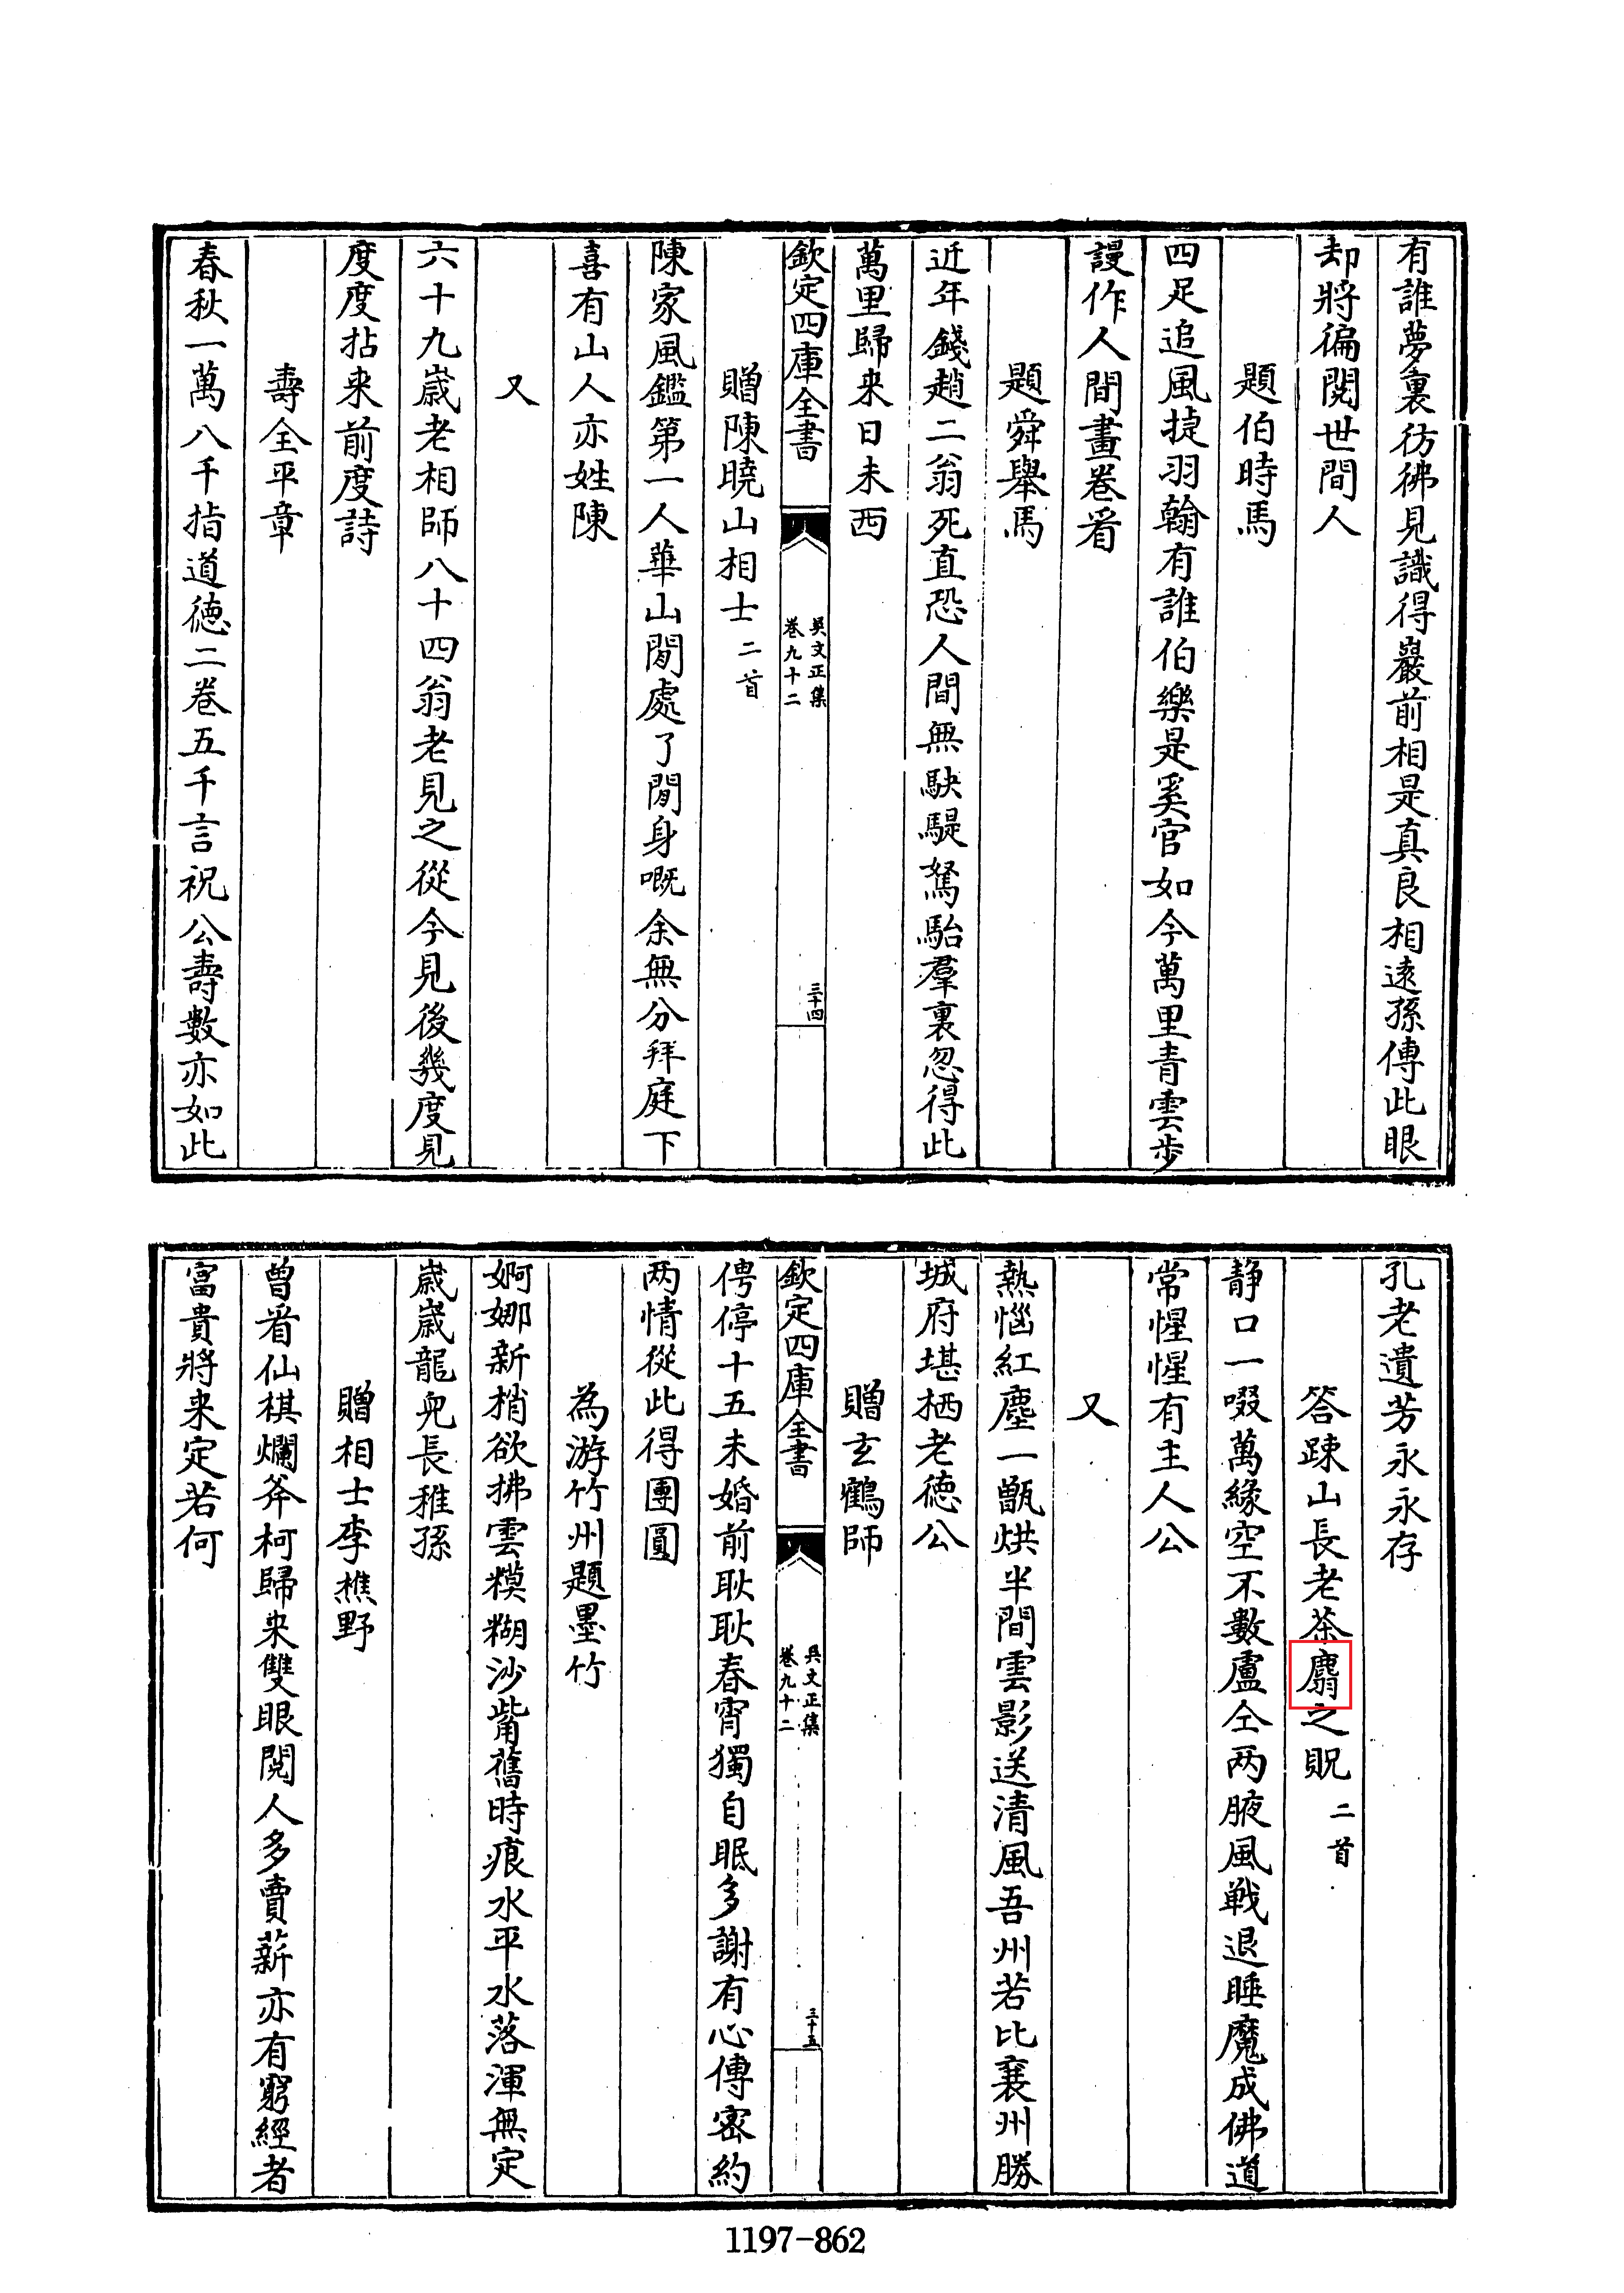 有誰夢裏彷彿見識得巖前相是真良相逺孫傳此眼
却將徧閱世間人
題伯時馬
四足追風捷羽翰有誰伯樂是奚官如今萬里青雲步
謾作人間畫卷㸔
題舜舉馬
近年錢趙二翁死直恐人間無駃騠駑駘羣裏忽得此
萬里歸来日未西
欽定四庫全書
吳文正集
卷九十二
三十四
贈陳曉山相士二首
陳家風鑑第一人華山閒處了閒身嘅余無分拜庭下
喜有山人亦姓陳
又
六十九歲老相師八十四翁老見之從今見後幾度見
度度拈来前度詩
壽全平章
春秋一萬八千指道徳二卷五千言祝公壽數亦如此
孔老遺芳永永存
答疎山長老茶之貺二首
静口一啜萬緣空不數盧仝两腋風戰退睡魔成佛道
常惺惺有主人公
又
熱惱紅塵一甑烘半間雲影送清風吾州若比襄州勝
城府堪栖老徳公
贈玄鶴師
欽定四庫全書
吳文正集
卷九十二
三十五
俜停十五未婚前耿耿春宵獨自眠多謝有心傳宻約
两情從此得團圓
為游竹州題墨竹
婀娜新梢欲拂雲糢糊沙觜舊時痕水平水落渾無定
歲歲龍兒長稚孫
贈相士李樵野
曽㸔仙棋爛斧柯歸来雙眼閲人多賣薪亦有窮經者
富貴將来定若何
1197-862